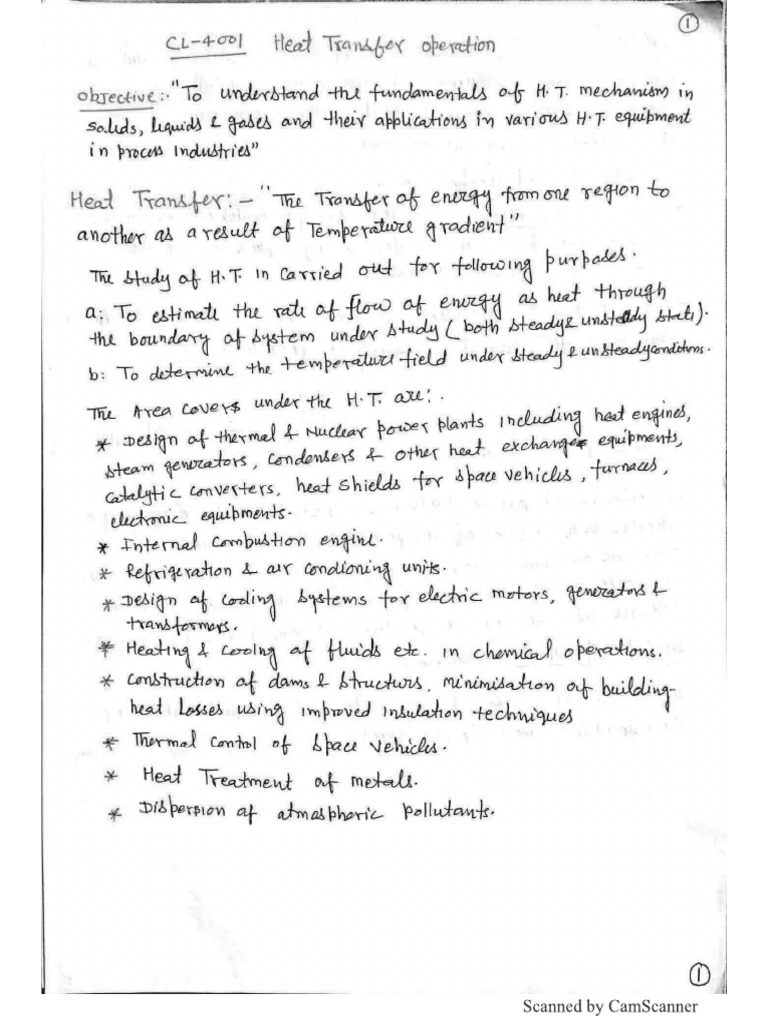 1
CL-4001 Heat Transfer operation
objective:- "To understand the fundamentals of H.T. mechanism in
solids, liquids & gases and their applications in various H.T. equipment
in process industries"
Heat Transfer:- "The Transfer of energy from one region to
another as a result of Temperature gradient"
The study of H.T. in carried out for following purposes.
a: To estimate the rate of flow of energy as heat through
the boundary of system under study (both steady & unsteady state).
b: To determine the temperature field under steady & unsteady conditions.
The Area covers under the H.T. are:.
* Design of thermal & Nuclear power plants including heat engines,
steam generators, condensers & other heat exchange equipments,
catalytic converters, heat shields for space vehicles, furnaces,
electronic equipments.
* Internal combustion engine.
* Refrigeration & air condioning units.
* Design of cooling systems for electric motors, generators &
transformers.
* Heating & cooling of fluids etc. in chemical operations.
* construction of dams & structurs, minimisation of building-
heat losses using improved insulation techniques
* Thermal control of space vehicles.
* Heat Treatment of metals.
* Dispersion of atmospheric pollutants.
1
Scanned by CamScanner